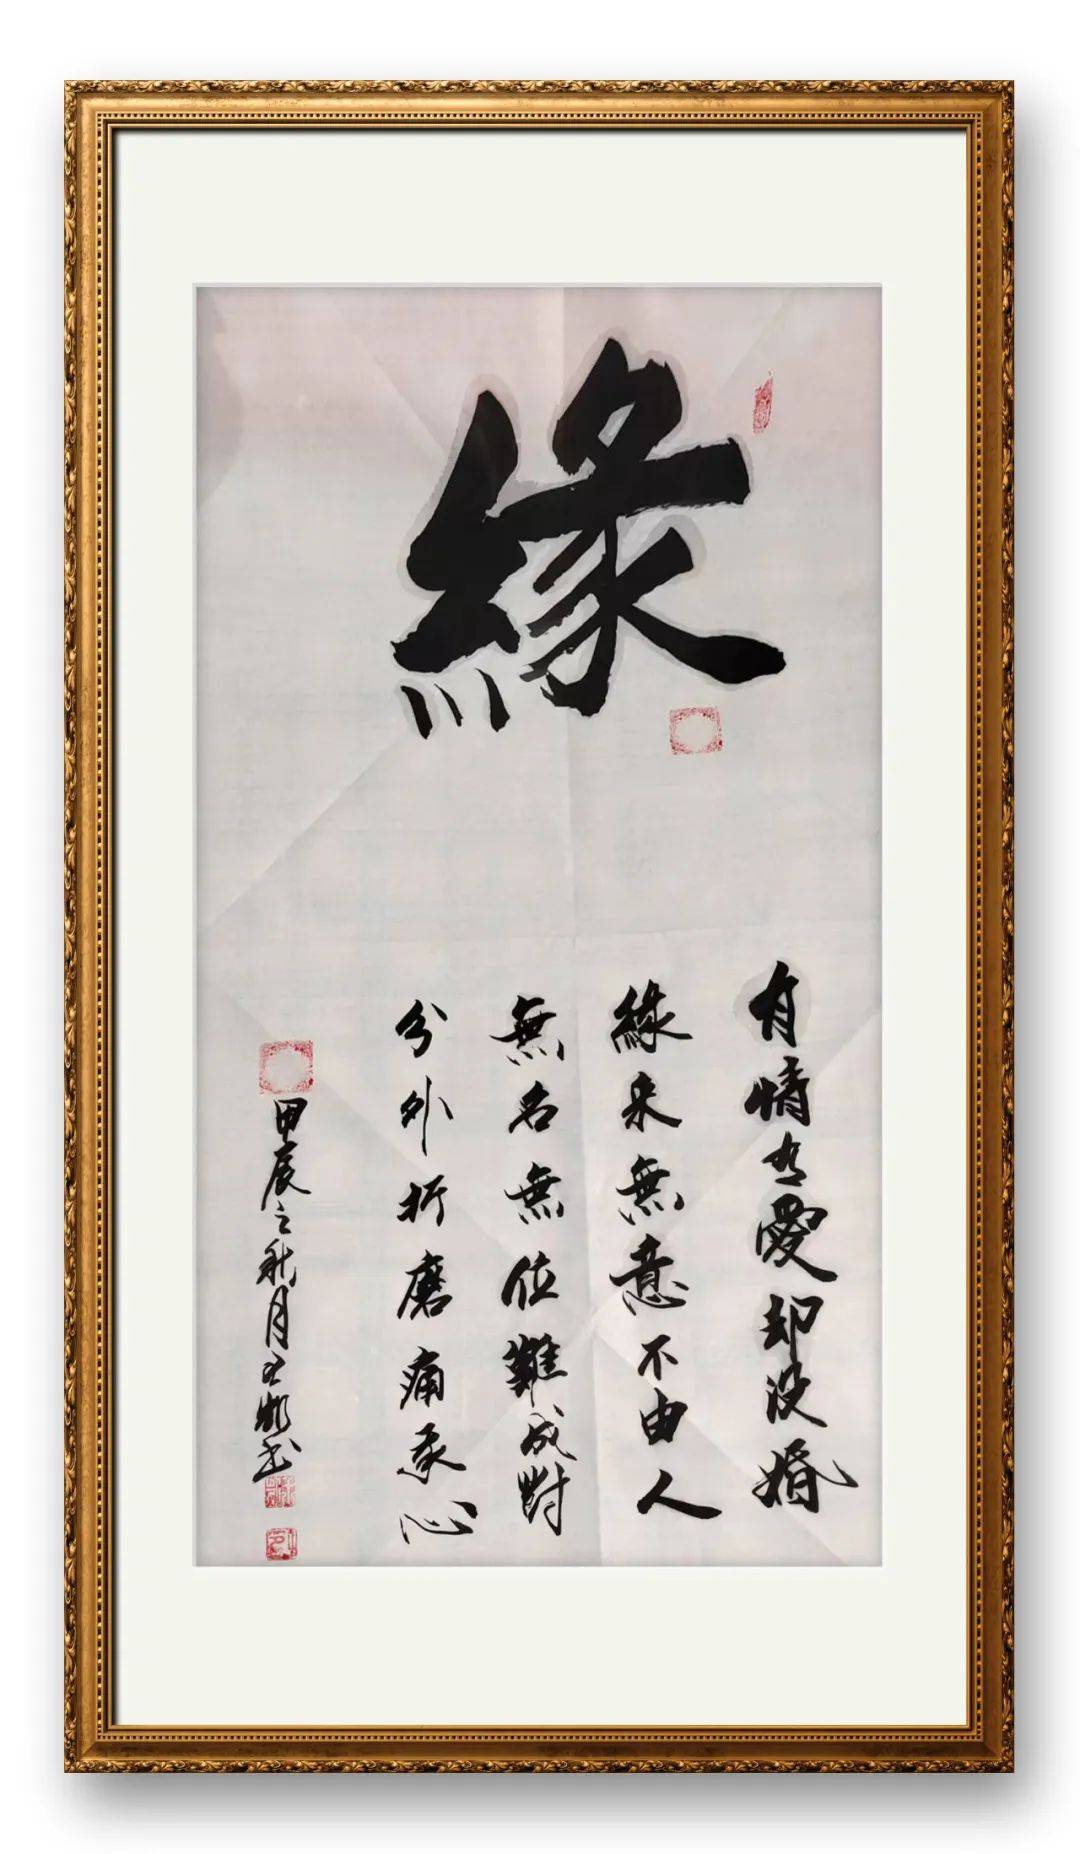 緣
有情有愛却没婚
緣来無意不由人
無名無位難成對
分外折磨痛柔心
甲辰之秋月王凱書